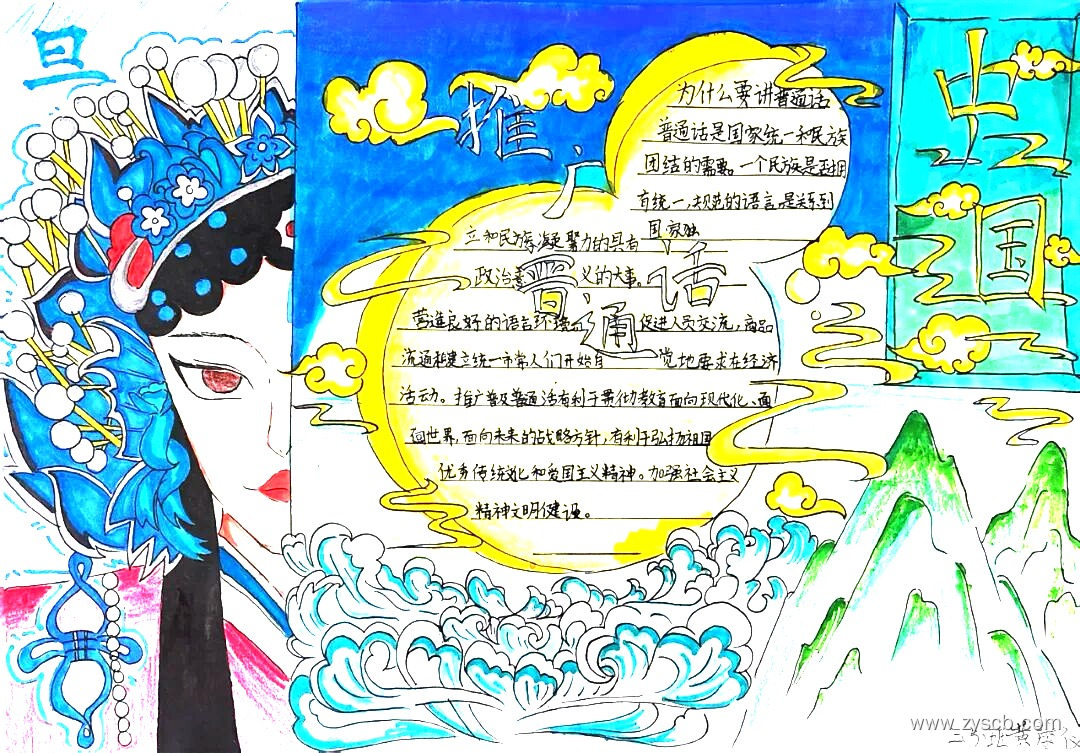 旦
推广
普通话
中国
为什么要讲普通话
普通话是国家统一和民族
团结的需要。一个民族是否拥
有统一、规范的语言,是关系到
国家独
立和民族凝聚力的具有
政治意 义的大事。
营造良好的语言环境 促进人员交流,商品
流通和建立统一市常人们开始自 觉地要求在经济
活动。推广普及普通话有利于贯彻教育面向现代化、面
向世界,面向未来的战略方针,有利于弘扬祖国
优秀传统文化和爱国主义精神。加强社会主义
精神文明健设。
www.zyscb.com